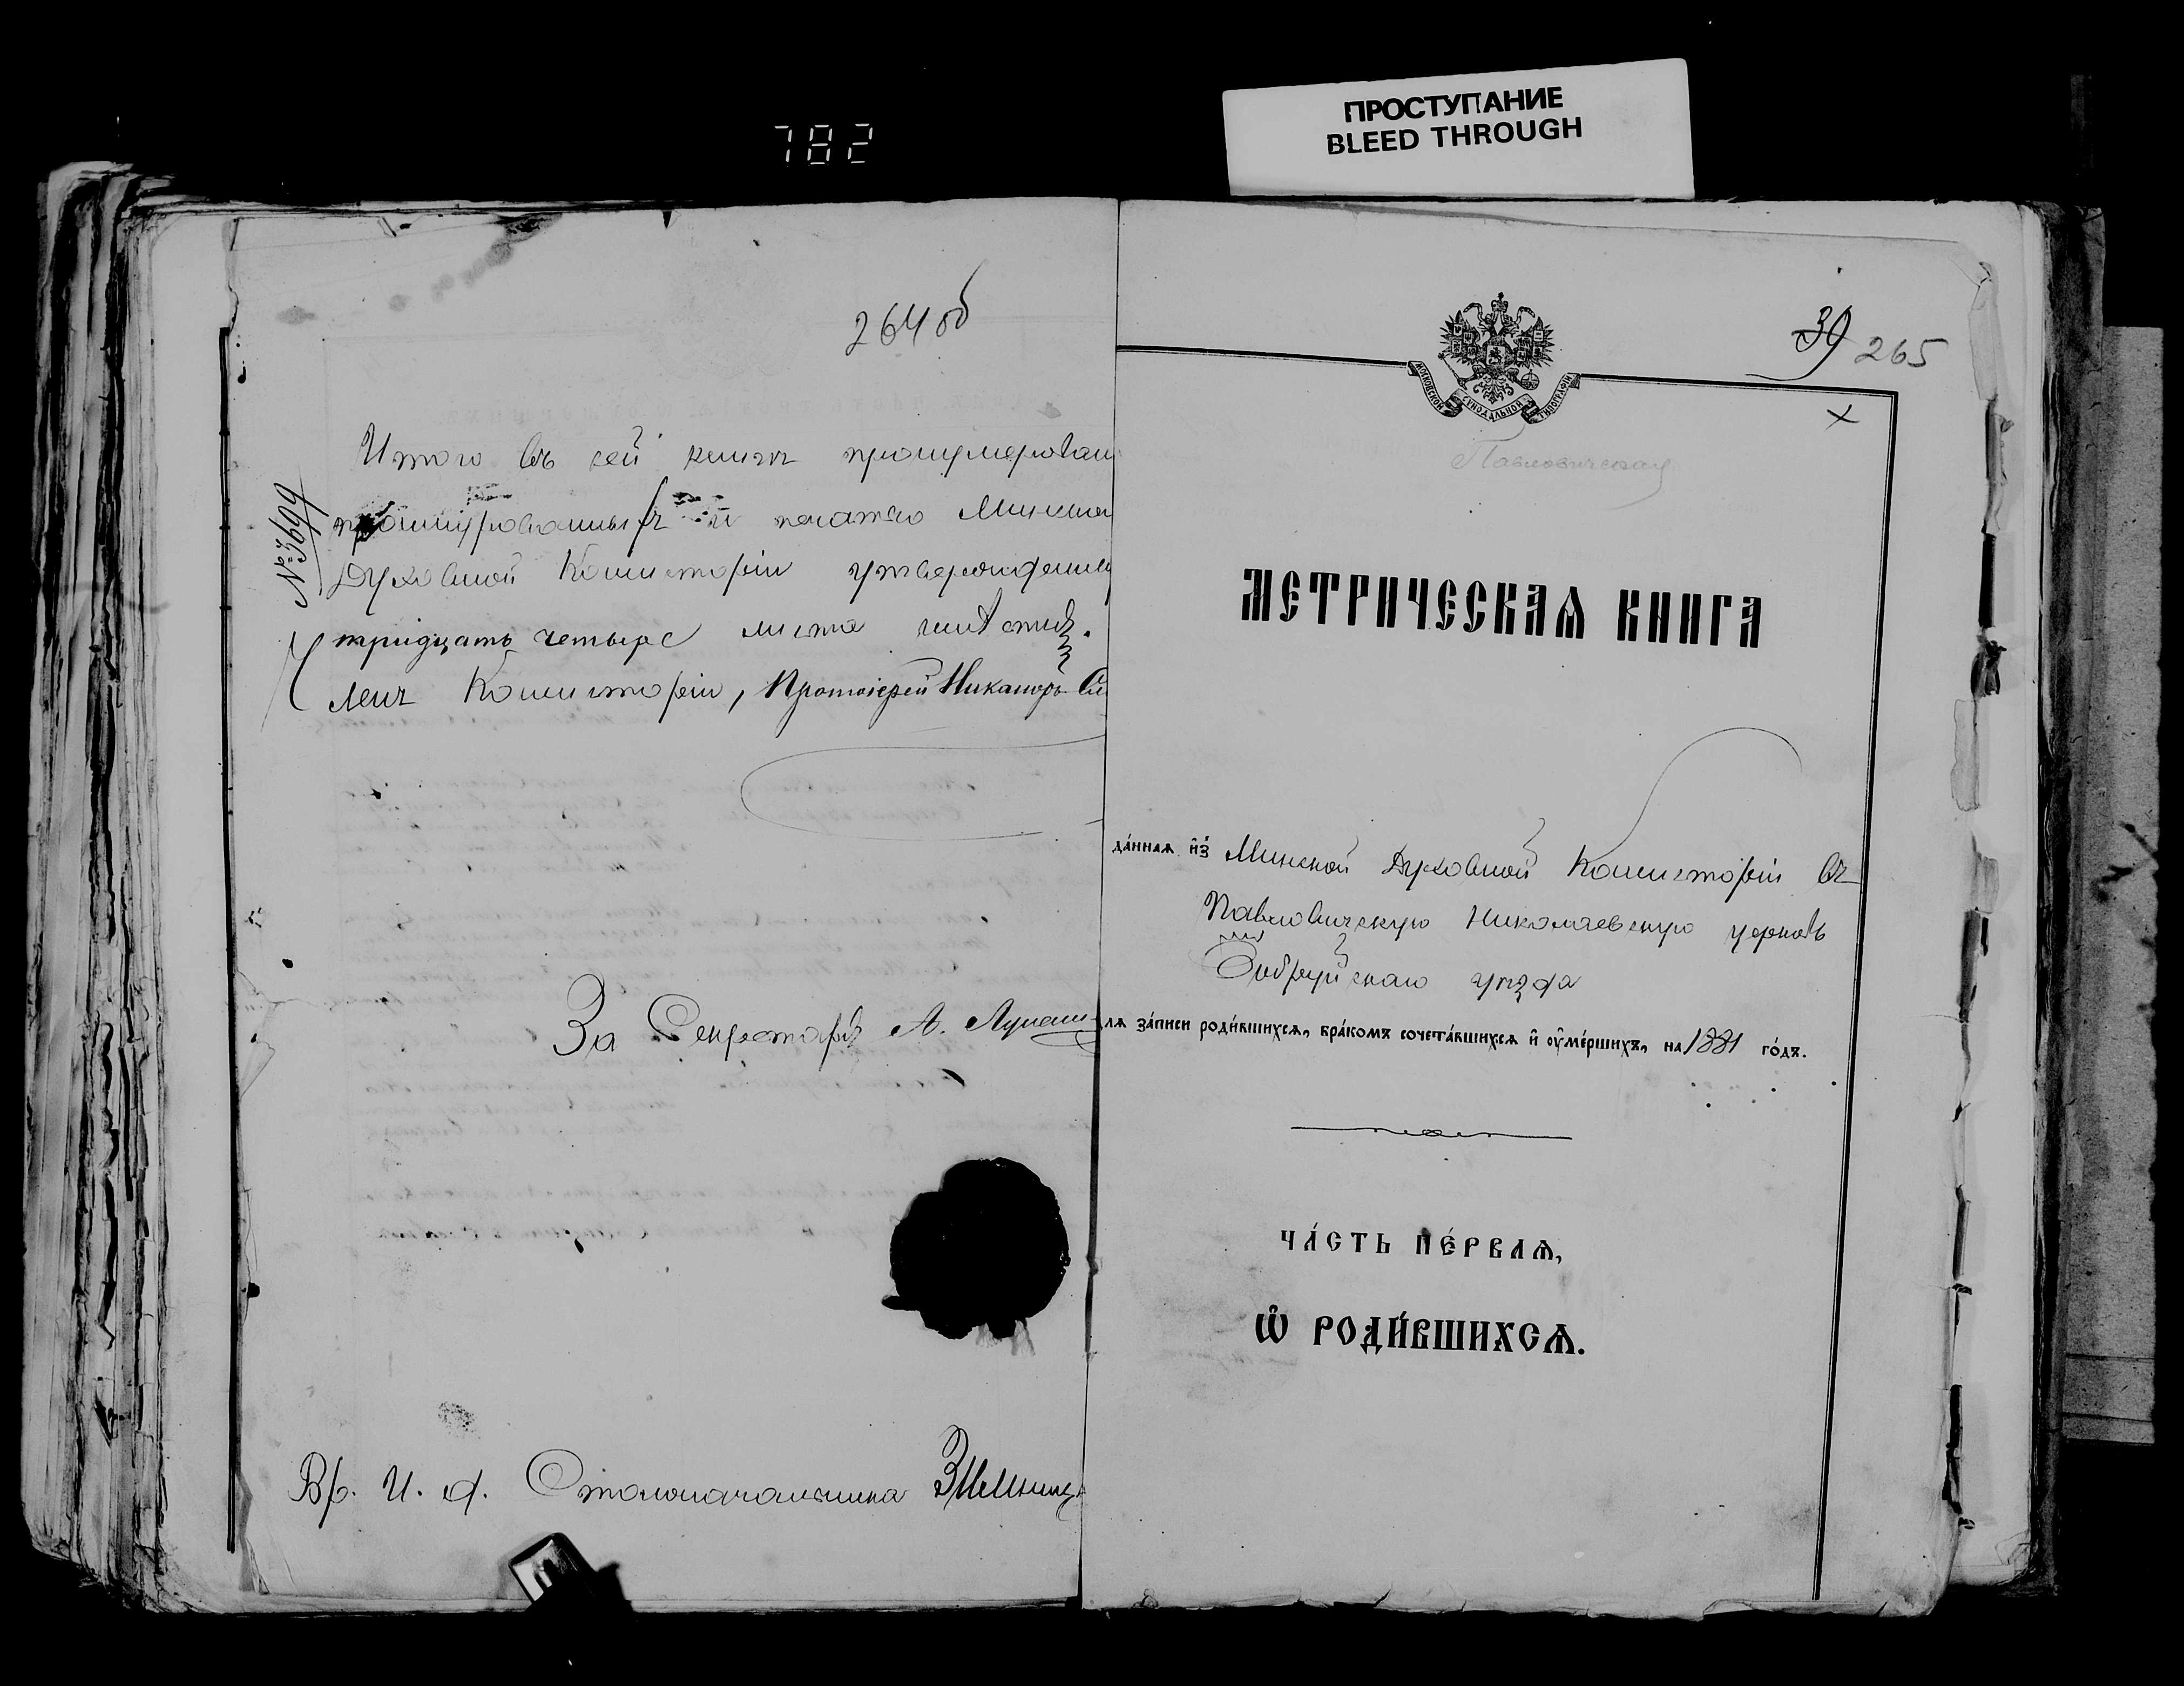 782
ПРОСТУПАНИЕ
BLEED THROUGH
264 об
Итого въ сей книгѣ пронумерован
прошнурованныхъ и печатью Минско
Духовной Консисторіи утвержденны
тридцать четыре листа
Членъ Консисторіи, Протоіерей Никаноръ См
№ 3699
За Секретаря А.
Вр. И. д. Столоначальника
39 265
МОСКОВСКОЙ СѴНОДАЛЬНОЙ ТИПОГРАФІИ
Павловическая
МЕТРИЧЕСКАѦ КНИГА
да́ннаѧ и҆з̾ Минской Духовной Консисторіи въ
Павловичскую Николаевскую церковь
Бобруйскаго уѣзда
лѧ за́писи роди́вшихсѧ, бра́комъ сочета́вшихсѧ и҆ ᲂу҆ме́ршихъ, на 1881 го́дъ.
ЧА́СТЬ ПЕ́РВАѦ,
Ѽ РОДИ́ВШИХСѦ.